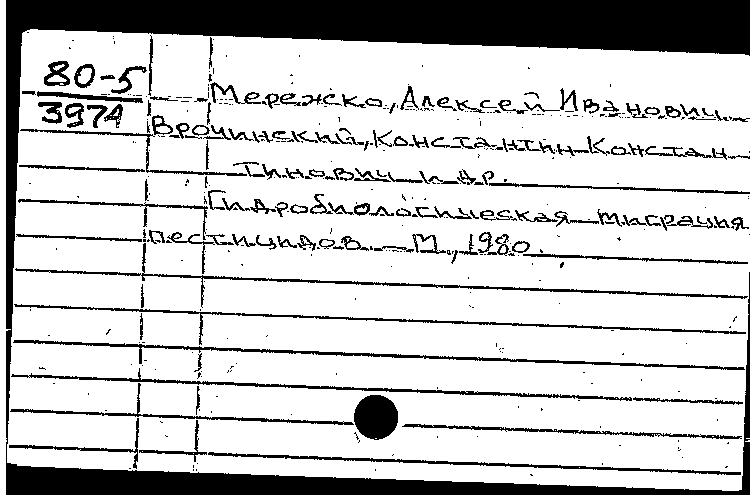 80-5
3974
Мережко, Алексей Иванович
Врочинский, Константин Констан-
тинович и др.
Гидробиологическая миграция
пестицидов. – М., 1980.